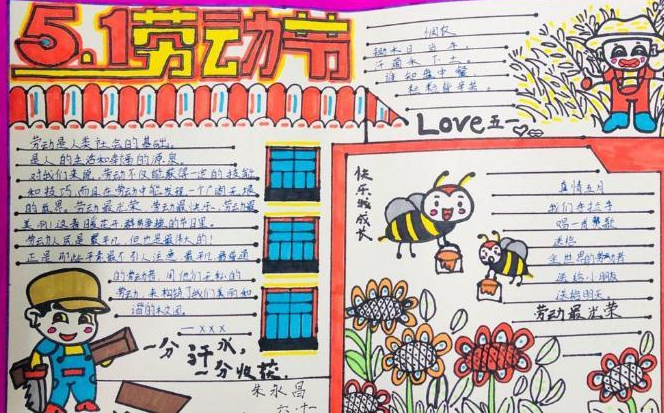 5.1劳动节
悯农
锄禾日当午,
汗滴禾下土。
谁知盘中餐,
粒粒皆辛苦。
Love五一
劳动是人类社会的基础,
是人的生活和幸福的源泉。
对我们来说,劳动不仅能获得一定的技能
和技巧,而且在劳动中能发现一个广阔无垠
的世界。劳动最光荣、劳动最快乐、劳动最
美丽!这春暖花开
的节日里。
劳动人民是最平凡,但也是最伟大的!
正是那些平素最不引人注意,最平凡最普通
的劳动者,用他们无私的
劳动,来构筑了我们美丽和
谐的校园。
—xxx
一分汗水,
一分收获
朱永昌
六.十一
快乐成长
真情五月
我们手拉手
唱一首赞歌
送给
全世界的劳动者
送给小朋友
送给明天。
劳动最光荣